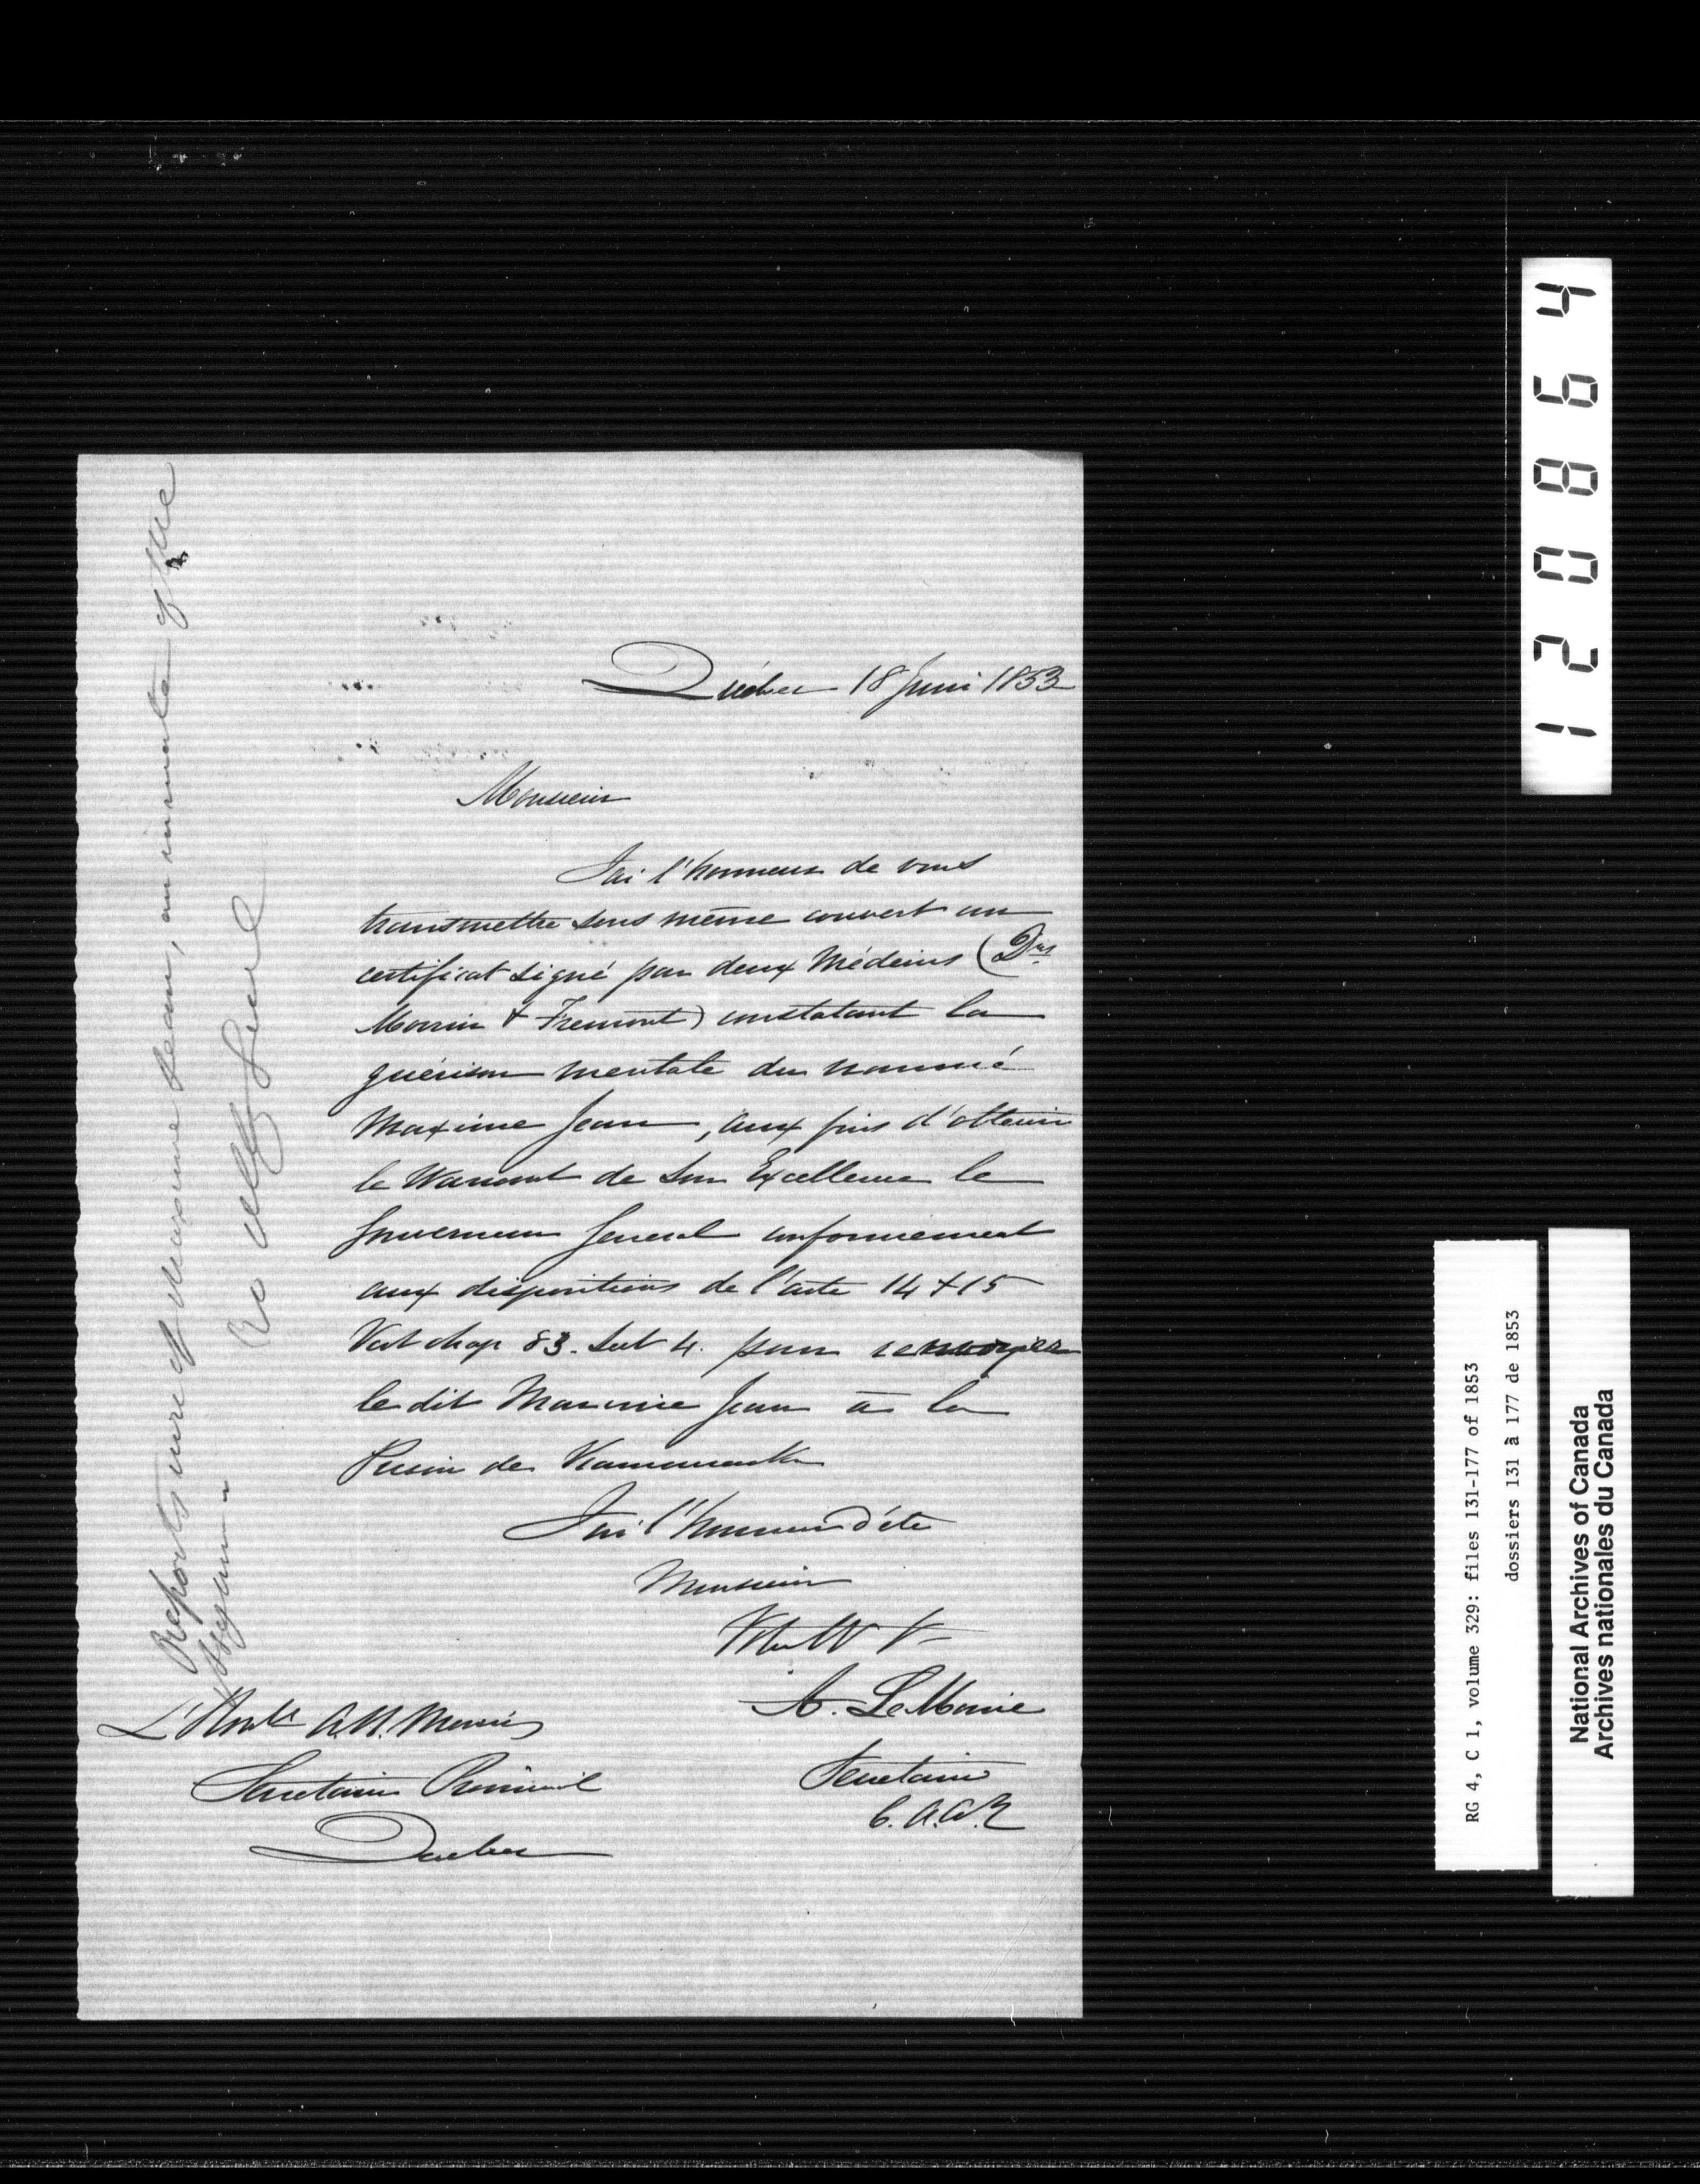 Québec 18 Juin 1853
Monsieur
J'ai l'honneur de vous
transmettre sous même couvert un
certificat signé par deux Médecins (Drs
Morrin & Fremont) constatant la
guérison mentale du nommé
Maxime Jean, aux fins d'obtenir
le Warrant de Son Excellence le
Gouverneur General conformement
aux dispositions de l'acte 14 & 15
Vict chap 83. Sect 4. pour renvoyer
le dit Maxime Jean à la
Prison de Kamouraska
J'ai l'honneur d'être
Monsieur
A. LeMoine
Secretaire
L'Honble A.N. Morin
Secretaire Provincial
Quebec
Reports cure of Maxime Jean, an inmate of the
Asylum
1 2 0 8 6 4
RG 4, C 1, volume 329: files 131-177 of 1853
dossiers 131 à 177 de 1853
National Archives of Canada
Archives nationales du Canada